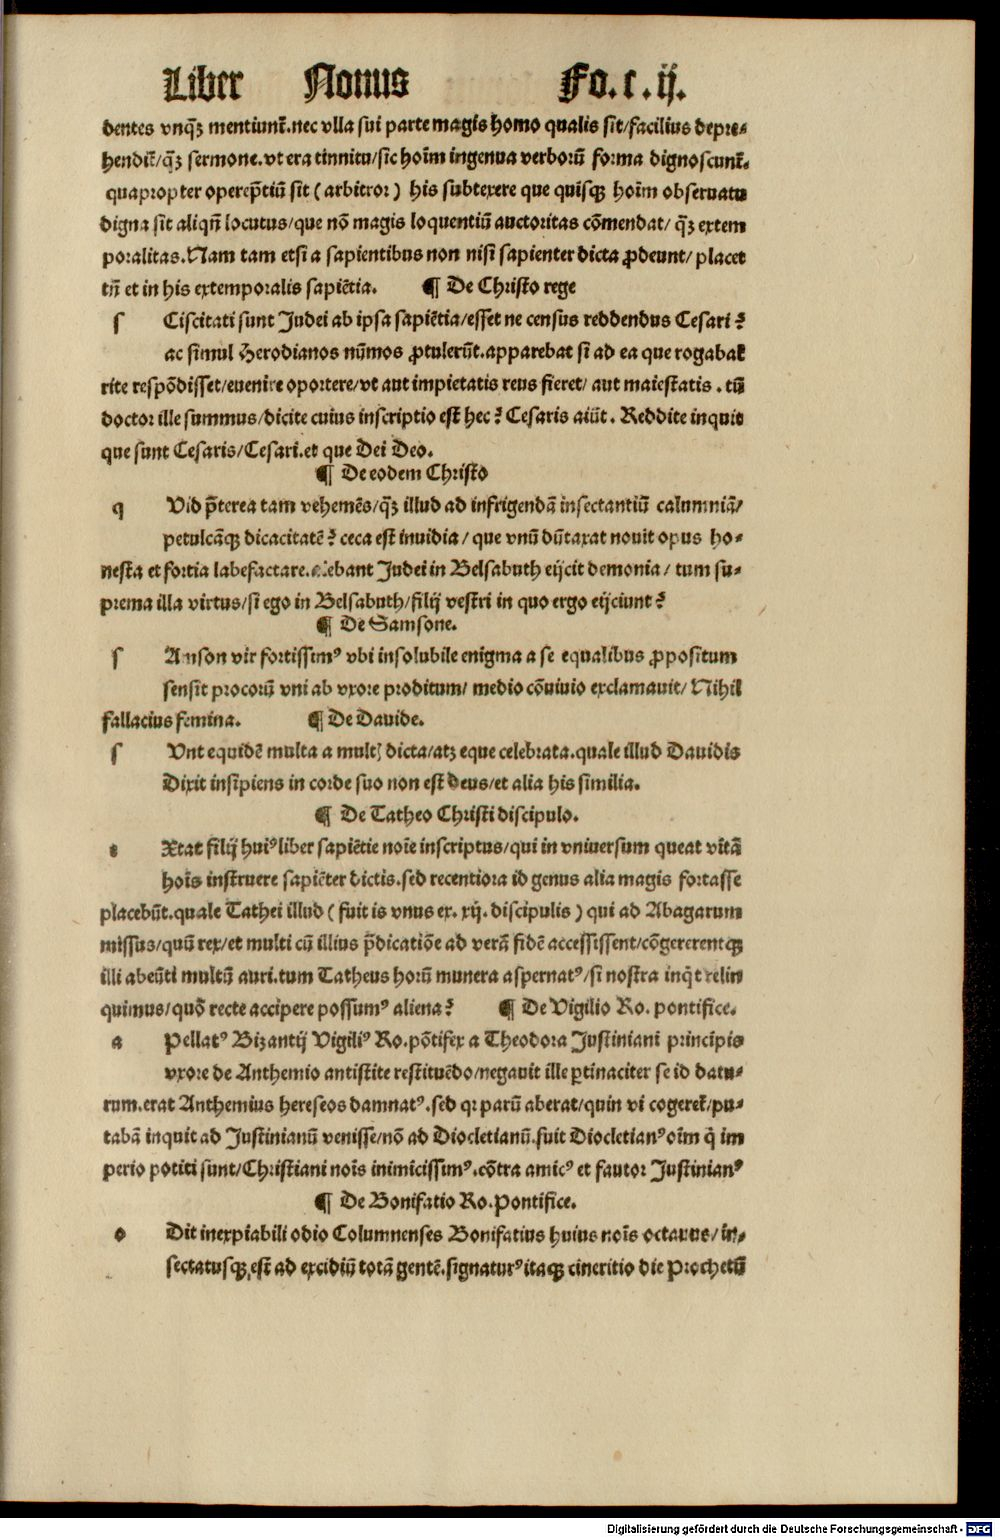 Liber Nonus Fo. c. ij.
dentes vnq̃ȝ mentiunt̃. nec vlla sui parte magis homo qualis sit/facilius depre-
hendit̃/q̃ȝ sermone. vt era tinnitu/sic hoĩm ingenua verborũ forma dignoscunt̃.
quapropter operep̃tiũ sit (arbitror) his subtexere que quisqȝ hoĩm obseruatu
digna sit aliqñ locutus/que nõ magis loquentiũ auctoritas cõmendat/ q̃ȝ extem
poralitas. Nam tam etsi a sapientibus non nisi sapienter dicta ꝓdeunt/ placet
tñ et in his extemporalis sapiẽtia. ¶ De Christo rege
s Ciscitati sunt Judei ab ipsa sapiẽtia/esset ne census reddendus Cesari?
ac simul Herodianos nũmos ꝓtulerũt. apparebat si ad ea que rogabat̃
rite respõdisset/euenire oportere/vt aut impietatis reus fieret/ aut maiestatis. tũ
doctor ille summus/dicite cuius inscriptio est hec? Cesaris aiũt. Reddite inquit
que sunt Cesaris/Cesari. et que Dei Deo.
¶ De eodem Christo
q Vid p̃terea tam vehemẽs/q̃ȝ illud ad infrigendã insectantiũ calumniã/
petulcãqȝ dicacitatẽ? ceca est inuidia/ que vnũ dũtaxat nouit opus ho-
nesta et fortia labefactare. aiebant Judei in Belsabuth eijcit demonia/ tum su-
prema illa virtus/si ego in Belsabuth/filij vestri in quo ergo eijciunt?
¶ De Samsone.
s Amson vir fortissimꝰ vbi insolubile enigma a se equalibus ꝓpositum
sensit procorũ vni ab vxore proditum/ medio cõuiuio exclamauit/ Nihil
fallacius femina. ¶ De Dauide.
s Vnt equidẽ multa a mult̃ dicta/atqȝ eque celebrata. quale illud Dauidis
Dixit insipiens in corde suo non est deus/et alia his similia.
¶ De Tatheo Christi discipulo.
e Xtat filij huiꝰ liber sapiẽtie noĩe inscriptus/qui in vniuersum queat vitã
hoĩs instruere sapiẽter dictis. sed recentiora id genus alia magis fortasse
placebũt. quale Tathei illud (fuit is vnus ex. xij. discipulis) qui ad Abagarum
missus/quũ rex/et multi cũ illius p̃dicatiõe ad verã fidẽ accessissent/cõgererentqȝ
illi abeũti multũ auri. tum Tatheus horũ munera aspernatꝰ/si nostra inq̃t relin
quimus/quõ recte accipere possumꝰ aliena? ¶ De Vigilio Ro. pontifice.
a Pellatꝰ Bizantij Vigiliꝰ Ro. põtifex a Theodora Justiniani principis
vxore de Anthemio antistite restituẽdo/negauit ille ꝑtinaciter se id datu-
rum. erat Anthemius hereseos damnatꝰ. sed qr parũ aberat/quin vi cogeret̃/pu-
tabã inquit ad Justinianũ venisse/nõ ad Diocletianũ. fuit Diocletianꝰ oĩm q̃ im
perio potiti sunt/Christiani noĩs inimicissimꝰ. cõtra amicꝰ et fautor Justinianꝰ
¶ De Bonifatio Ro. pontifice.
o Dit inexpiabili odio Columnenses Bonifatius huius noĩs octauus/ in-
sectatusqȝ est ad excidiũ totã gentẽ. signaturꝰ itaqȝ cineritio die Prochetũ
Digitalisierung gefördert durch die Deutsche Forschungsgemeinschaft - DFG